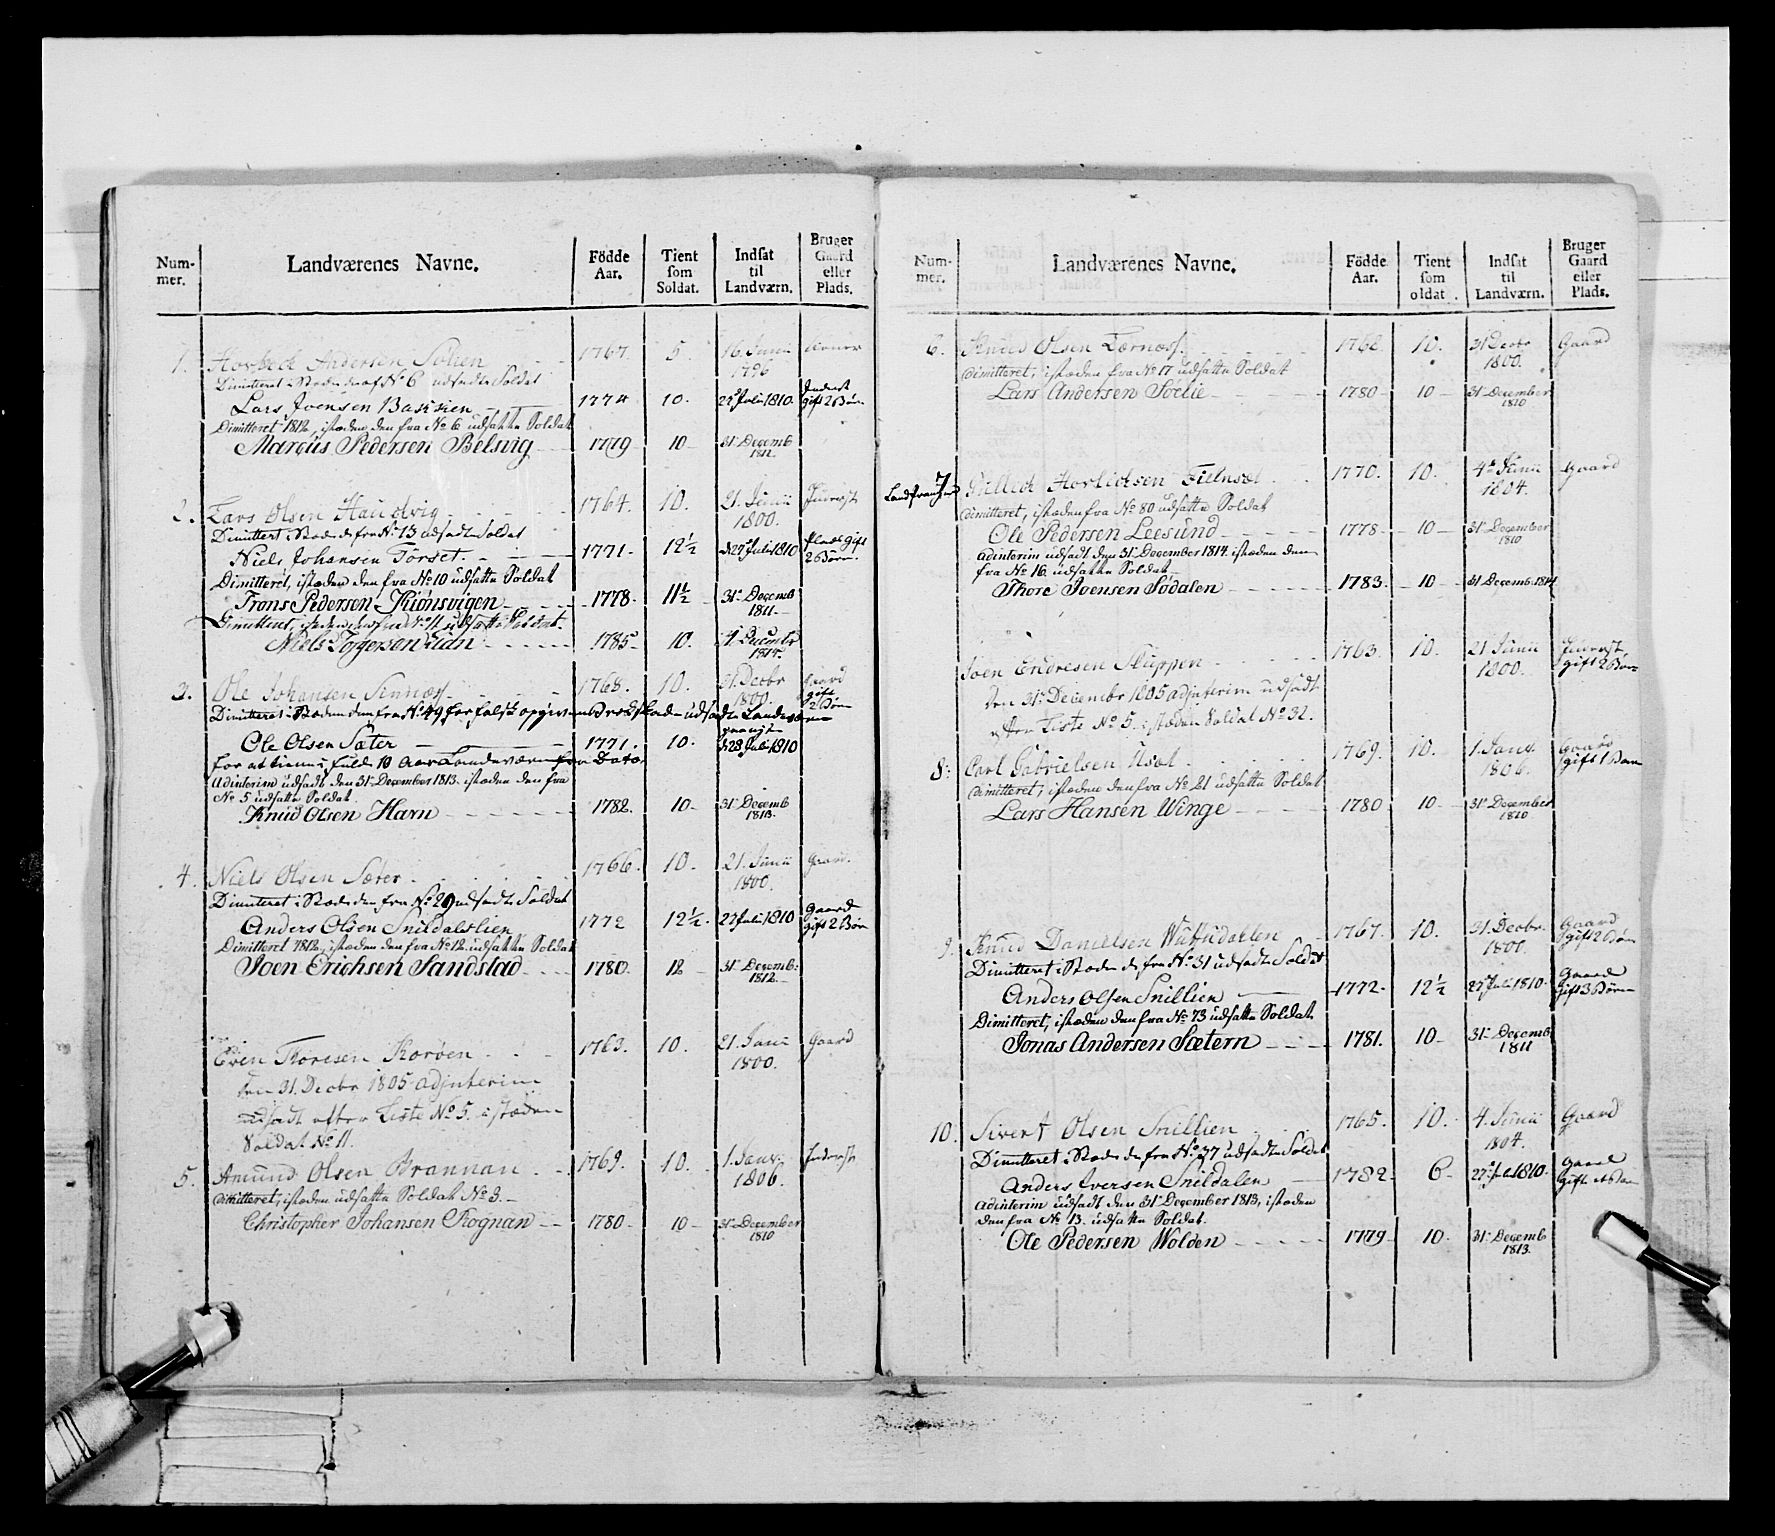 Num-
mer.
Landværenes Navne.
Födde
Aar.
Tient
som
Soldat.
Indsat
til
Landværn.
Bruger
Gaard
eller
Plads.
1. Andersen 1767. 5 16. Junii
1796
Dimitteret No 6 udsadte Soldat
Lars Joensen 1774 10. 27 Juli 1810. Inderst gift 2 Børn
Dimitteret 1812, istæden den fra No 6 udsatte Soldat
Marcus Pedersen Belsvig 1779 10 31 Decemb
1812.
2. Lars Olsen Haugdvig 1764. 10. 21. Junii
1800.
Dimittert i Stæden fra No 13 udsadte Soldat
Niels Johansen Torset. 1771. 12½ d 27 Juli 1810 Plads gift
2 Børn
Dimitteret, istæden den fra No 10 udsatte Soldat
Frans Pedersen Kiønsvigen 1778. 11½ 31 Decemb
1811.
Dimitteret, istæden den fra No 11 udsatte Soldat.
Niels 1785 10. 31 Decembr
1814.
3. Ole Johansen 1768. 10. 21. Decbr
1800.
Gaard
gift
2 Børn
Dimitteret i Stæden den fra No 49 for falsk udsadte Landværn
Ole Olsen Sæter 1771. 10. d 28 Juli 1810
for at tiene fulde 10 Aar Landeværn fra Dato.
Adinterim udsadt den 31 December 1813. istæden den fra
No 5 udsatte Soldat.
Knud Olsen Havn 1782. 10 31 Decemb
1813.
4. Niels Olsen Sæter 1766. 10. 21. Junii
1800.
Gaard.
Dimitteret i Stæden den fra No 29 udsadte Soldat
Anders Olsen Snildalslien 1772 12½. 27 Juli 1810 Gaard
gift 2 Børn
Dimitteret 1812, istæden den fra No 12 udsatte Soldat
Joen Erichsen Sandstad 1780. 12 31 Decemb:
1812.
Even Toresen Korøen 1763. 10. 21. Junii
1800.
Gaard
den 31. Decbr 1805 adjnterim
udsadt efter Liste No 5. istæden
Soldat No 11.
5. Amund Olsen 1769. 10. 1. Janv.
1806.
Inderst
Dimitteret, istæden udsatte Soldat No 3.
Christopher Johansen Rognan 1780 10 31 December
1810
Num-
mer.
Landværenes Navne.
Födde
Aar.
Tient
som
oldat.
Indsat
til
Landværn.
Bruger
Gaard
eller
Plads.
6. Knud Olsen 1762 10. 31 Decbr
1800.
Gaard
Dimitteret, istæden fra No 17 udsatte Soldat
Lars Andersen Sørlie 1780 10 31 December
1810
7 1770. 10. 4 Junii
1804.
Gaard
Dimitteret, istæden fra No 80 udsatte Soldat
Ole Pedersen Leesund 1778 10 31 December
1810
Adinterim udsadt den 31 December 1814. istæden den
fra No 16. udsatte Soldat
Thore Joensen Sødalen 1783. 10 31 Decemb. 1814
Joen Endresen Skuppen 1763. 10. 21 Junii
1800.
Inderst,
gift 2 Børn
den 31 Decembr 1805 adjnterim udsadt
efter Liste No 5. istæden Soldat No 32.
8. Carl Gabrielsen 1769. 10. 1. Janv.
1806.
Gaard
gift 1 Barn
Dimitteret, istæden den fra No 21 udsatte Soldat
Lars Hansen Winge 1780 10 31 December
1810
9. Knud Danielsen 1767. 10. 31. Decbr.
1800.
Gaard
gift 2 Børn
Dimitteret i Stæden d fra No 31 udsadte Soldat
Anders Olsen Snillien 1772. 12½ 27 Juli 1810. Gaard
gift 3 Børn
Dimitteret, istæden den fra No 73 udsatte Soldat
Jonas Andersen Sætern 1781. 10 31 Decemb
1811
10. Sivert Olsen Snillien 1765. 10. 4. Junii
1804.
Gaard
Dimitteret i Stæden d fra No 37 udsadte Soldat
Anders Iversen Snildalen 1782. 6 27 Juli 1810. Gaard
gift
Adinterim udsadt den 31 December 1813, istæden
den fra No 13. udsatte Soldat.
Ole Pedersen Wolden 1779 10. 31 Decemb
1813.